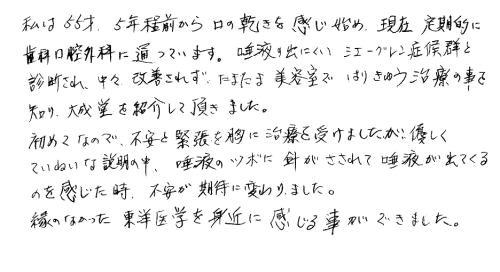 私は55才、5年程前から口の乾きを感じ始め、現在 定期的に
歯科口腔外科に通っています。唾液の出にくい シェーグレン症候群と
診断され、中々 改善されず、たまたま 美容室で はりきゅう治療の事を
知り、大成堂を紹介して頂きました。
初めてなので、不安と緊張を胸に治療を受けましたが、優しく
ていねいな説明の中、唾液のツボに針がさされて唾液が出てくる
のを感じた時、不安が期待に変わりました。
縁のなかった東洋医学を身近に感じる事ができました。